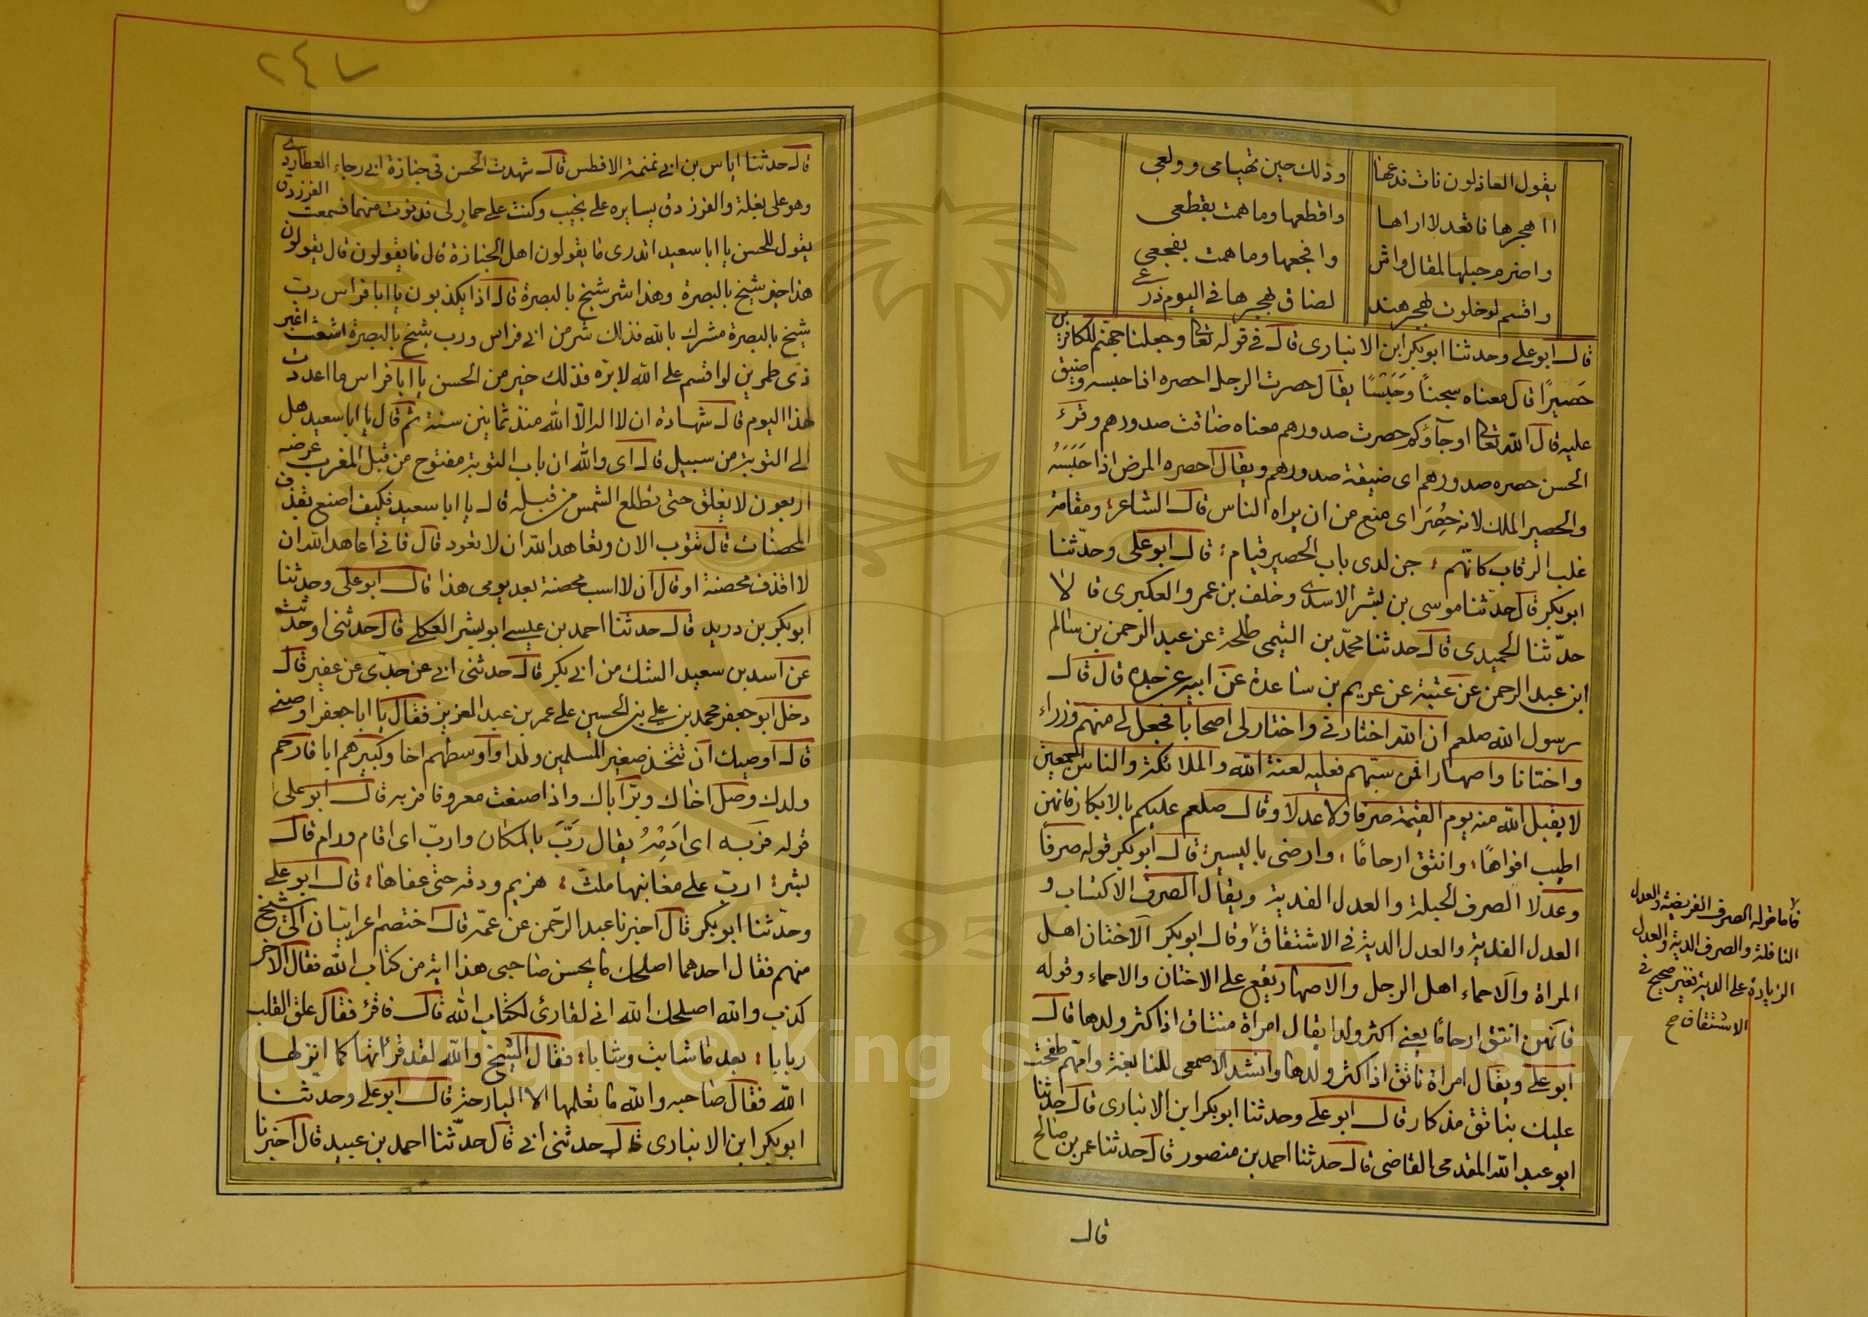 يقول العاذلون نات فدعها وذلك حين تهيامى وولعى
ااهجرها فاقعد لا اراها واقطعها وما همت بقطعى
واصرم حبلها لمقال واش وافجعها وما همت بفجعى
واقسم لو خلوت بهجر هند لضاق بهجرها فى اليوم ذرعى
قال ابو على وحدثنا ابو بكر ابن الانبارى قال فى قوله تعالى وجعلنا جهنم للكافرين
حصيرًا قال معناه سجنًا وحَبْسًا يقال حصرت الرجل احصره اذا حبسه وضيق
عليه قال الله تعالى او جآؤكم حصرت صدورهم معناه ضاقت صدورهم وقرء
الحسن حصره صدورهم اى ضيقة صدورهم ويقال احصره المرض اذا حَبَسَهُ
والحصير الملك لانه حُصِرَ اى منع من ان يراه الناس قال الشاعر؛ ومقامة
غلب الرقاب كانّهم ؛ جن لدى باب الحصير قيام ؛ قال ابو على وحدّثنا
ابو بكر قال حدّثنا موسى بن بشر الاسدى وخلف بن عمرو العكبرى قالا
حدّثنا الحميدى قال حدثنا محمّد بن التيمى طلحة عن عبد الرحمن بن سالم
ابن عبد الرحمن عن عتبة عن عريم بن ساعدة عن ابيه عن جده قال قال
رسول الله صلعم ان الله اختارنى واختار لى اصحابا فجعل لى منهم وزراء
واختانا واصهارا فمن سبّهم فعليه لعنة الله والملائكة والناس اجمعين
لا يقبل الله منه يوم القيمة صرفا ولا عدلا وقال صلعم عليكم بالابكار فانهن
اطيب افواهًا؛ وانتق ارحامًا؛ وارضى باليسير؛ قال ابو بكر قوله صرفًا
وعدلا الصرف الحيلة والعدل الفدية ويقال الصرف الاكتساب و
العدل الفدية والعدل الدية فى الاشتقاق وقال ابو بكر الاختان اهل
المراة والاحماء اهل الرجل والاصهار يقع على الاختان والاحماء وقوله
فانهن انتق ارحامًا يعنى اكثر ولدا يقال امراة منتاق اذا كثر ولدها قال
ابو على ويقال امراة ناتق اذا كثر ولدها وانشد الاصمعى للنابغة وامهم طفحت
عليك بناتق مذكار قال ابو على وحدثنا ابو بكر ابن الانبارى قال حدثنا
ابو عبد الله المقدمى القاضى قال حدثنا احمد بن منصور قال حدثنا عمر بن صالح
قال
فاما قوله الصرف الفريضة والعدل
النافلة والصرف الدية والعدل
الزيادة على الدية فغير صحيح فى
الاشتقاق صح
٢٤٧
قال حدثنا اياس بن ابى تميمة الافطس قال شهدت الحسن فى جنازة ابى رجاء العطاردى
وهو على بغلة والفرزدق يسايره على نجيب وكنت على حمار لى فدنوت منهما فسمعت الفرزدق
يقول للحسن يا ابا سعيد اتدرى ما يقولون اهل الجنازة قال ما يقولون قال يقولون
هذا خير شيخ بالبصرة وهذا شر شيخ بالبصرة قال اذا يكذبون يا ابا فراس رب
شيخ بالبصرة مشرك بالله فذاك شر من ابى فراس ورب شيخ بالبصرة اشعث اغبر
ذى طمرين لو اقسم على الله لابرّه فذلك خير من الحسن يا ابا فراس ما اعددت
لهذا اليوم قال شهادة ان لا اله الّا الله منذ ثمانين سنة ثم قال يا ابا سعيد هل
الى التوبة من سبيل قال اى والله ان باب التوبة مفتوح من قبل المغرب عرضه
اربعون لا يغلق حتى تطلع الشمس من قبله قال يا ابا سعيد فكيف اصنع بقذف
المحصنات قال تتوب الان وتعاهد الله ان لا تعود قال فانى اعاهد الله ان
لا اقذف محصنة او قال ان لا اسب محصنة بعد يومى هذا قال ابو على وحدثنا
ابو بكر بن دريد قال حدثنا احمد بن عيسى ابو بشر العكلى قال حدثنى او حدثت
عن اسد بن سعيد الشك من ابى بكر قال حدثنى ابى عن جدّى عن عفير قال
دخل ابو جعفر محمد بن على بن الحسين على عمر بن عبد العزيز فقال يا ابا جعفر اوصنى
قال اوصيك ان تتخذ صغير المسلمين ولدا واوسطهم اخا وكبيرهم ابا فارحم
ولدك وصل اخاك وبرّ اباك واذا صنعت معروفا فربه قال ابو على
قوله فربه اى ادِمْهُ يقال رَبَّ بالمكان واربّ اى اقام ودام قال
بشر؛ اربّ على مغانيها ملثّ ؛ هزيم ودقه حتى عفاها؛ قال ابو على
وحدّثنا ابو بكر قال اخبرنا عبد الرحمن عن عمّه قال اختصم اعرابيّان الى شيخ
منهم فقال احدهما اصلحك ما يحسن صاحبى هذا اية من كتاب الله فقال الآخر
كذب والله اصلحك الله انى لقارئ لكتاب الله قال فاقرء فقال علق القلب
ربابا؛ بعد ما شابت وشابا؛ فقال الشيخ والله لقد قرأتها كما انزلها
الله فقال صاحبه والله ما تعلمها الا البارحة قال ابو على وحدثنا
ابو بكر ابن الانبارى قال حدثنى ابى قال حدّثنا احمد بن عبيد قال اخبرنا
Copyright © King Saud University
1957